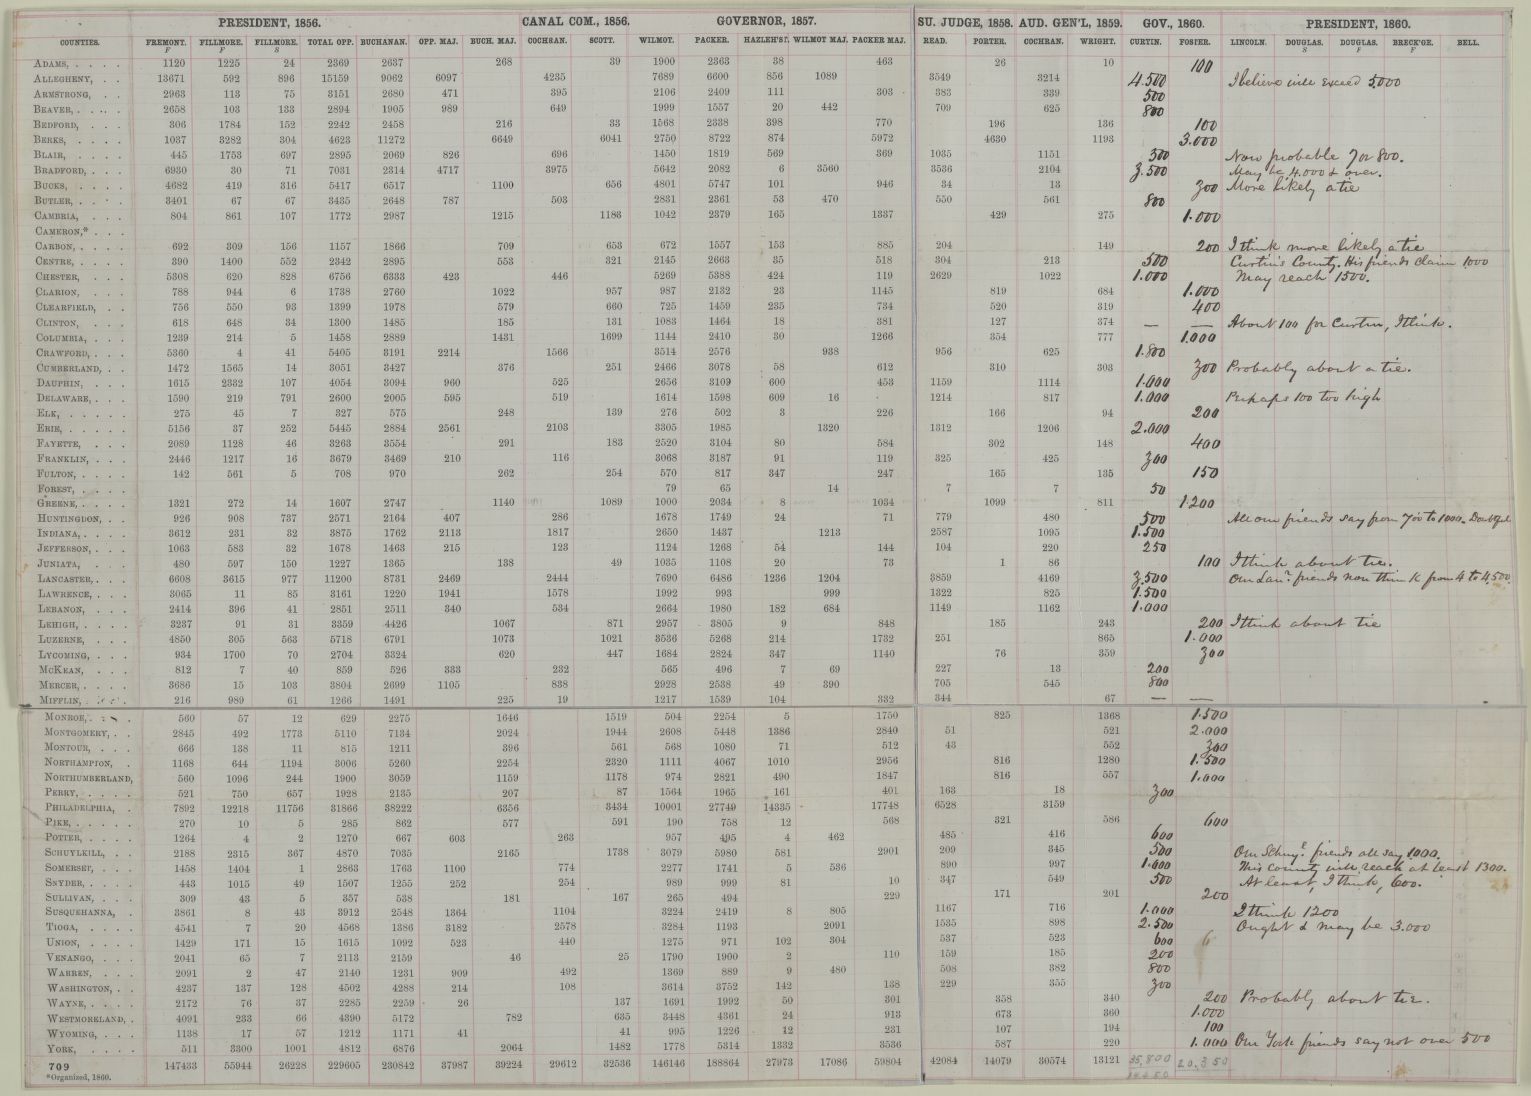 PRESIDENT, 1856. CANAL COM., 1856. GOVERNOR, 1857. SU. JUDGE, 1858. AUD. GEN'L, 1859. GOV., 1860. PRESIDENT, 1860.
COUNTIES. FREMONT. F FILLMORE. F FILLMORE. S TOTAL OPP. BUCHANAN. OPP. MAJ. BUCH. MAJ. COCHRAN. SCOTT. WILMOT. PACKER. HAZLEH'ST. WILMOT MAJ. PACKER MAJ. READ. PORTER. COCHRAN. WRIGHT. CURTIN. FOSTER. LINCOLN. DOUGLAS. S DOUGLAS. F BRECK'GE. F BELL.
ADAMS, 1120 1225 24 2369 2637 268 39 1900 2363 38 463 26 10 100
ALLEGHENY, 13671 592 896 15159 9062 6097 4235 7689 6600 856 1089 3549 3214 4.500 I believe will exceed 5,000
ARMSTRONG, 2963 113 75 3151 2680 471 395 2106 2409 111 303 383 339 500
BEAVER, 2658 103 133 2894 1905 989 649 1999 1557 20 442 709 625 800
BEDFORD, 306 1784 152 2242 2458 216 33 1568 2338 398 770 196 136 100
BERKS, 1037 3282 304 4623 11272 6649 6041 2750 8722 874 5972 4630 1193 3.000
BLAIR, 445 1753 697 2895 2069 826 696 1450 1819 569 369 1035 1151 300 Now probable 7 or 800.
BRADFORD, 6930 30 71 7031 2314 4717 3975 5642 2082 6 3560 3536 2104 3.500 May be 4.000 & over.
BUCKS, 4682 419 316 5417 6517 1100 656 4801 5747 101 946 34 13 300 More likely a tie
BUTLER, 3401 67 67 3435 2648 787 503 2831 2361 53 470 550 561 800
CAMBRIA, 804 861 107 1772 2987 1215 1183 1042 2379 165 1337 429 275 1.000
CAMERON,*
CARBON, 692 309 156 1157 1866 709 653 672 1557 153 885 204 149 200 I think more likely a tie
CENTRE, 390 1400 552 2342 2895 553 321 2145 2663 35 518 304 213 500 Curtin's County. His friends claim 1000
CHESTER, 5308 620 828 6756 6333 423 446 5269 5388 424 119 2629 1022 1.000 May reach 1500.
CLARION, 788 944 6 1738 2760 1022 957 987 2132 23 1145 819 684 1.000
CLEARFIELD, 756 550 93 1399 1978 579 660 725 1459 235 734 520 319 400
CLINTON, 618 648 34 1300 1485 185 131 1083 1464 18 381 127 374 — — About 100 for Curtin, I think.
COLUMBIA, 1239 214 5 1458 2889 1431 1699 1144 2410 30 1266 354 777 1.000
CRAWFORD, 5360 4 41 5405 3191 2214 1566 3514 2576 938 956 625 1.800
CUMBERLAND, 1472 1565 14 3051 3427 376 251 2466 3078 58 612 310 303 300 Probably about a tie.
DAUPHIN, 1615 2332 107 4054 3094 960 525 2656 3109 600 453 1159 1114 1.000
DELAWARE, 1590 219 791 2600 2005 595 519 1614 1598 609 16 1214 817 1.000 Perhaps 100 too high
ELK, 275 45 7 327 575 248 139 276 502 3 226 166 94 200
ERIE, 5156 37 252 5445 2884 2561 2103 3305 1985 1320 1312 1206 2.000
FAYETTE, 2089 1128 46 3263 3554 291 183 2520 3104 80 584 302 148 400
FRANKLIN, 2446 1217 16 3679 3469 210 116 3068 3187 91 119 325 425 300
FULTON, 142 561 5 708 970 262 254 570 817 347 247 165 135 150
FOREST, 79 65 14 7 7 50
GREENE, 1321 272 14 1607 2747 1140 1089 1000 2034 8 1034 1099 811 1.200
HUNTINGDON, 926 908 737 2571 2164 407 286 1678 1749 24 71 779 480 500 All our friends say from 700 to 1000. Doubtful
INDIANA, 3612 231 32 3875 1762 2113 1817 2650 1437 1213 2587 1095 1.500
JEFFERSON, 1063 583 32 1678 1463 215 123 1124 1268 54 144 104 220 250
JUNIATA, 480 597 150 1227 1365 138 49 1035 1108 20 73 1 86 100 I think about tie.
LANCASTER, 6608 3615 977 11200 8731 2469 2444 7690 6486 1236 1204 3859 4169 3.500 Our Lanr. friends now think from 4 to 4,500
LAWRENCE, 3065 11 85 3161 1220 1941 1578 1992 993 999 1322 825 1.500
LEBANON, 2414 396 41 2851 2511 340 534 2664 1980 182 684 1149 1162 1.000
LEHIGH, 3237 91 31 3359 4426 1067 871 2957 3805 9 848 185 243 200 I think about tie
LUZERNE, 4850 305 563 5718 6791 1073 1021 3536 5268 214 1732 251 865 1.000
LYCOMING, 934 1700 70 2704 3324 620 447 1684 2824 347 1140 76 359 300
MCKEAN, 812 7 40 859 526 333 232 565 496 7 69 227 13 200
MERCER, 3686 15 103 3804 2699 1105 838 2928 2538 49 390 705 545 800
MIFFLIN, 216 989 61 1266 1491 225 19 1217 1539 104 332 344 67 — —
MONROE, 560 57 12 629 2275 1646 1519 504 2254 5 1750 825 1368 1.500
MONTGOMERY, 2845 492 1773 5110 7134 2024 1944 2608 5448 1386 2840 51 521 2.000
MONTOUR, 666 138 11 815 1211 396 561 568 1080 71 512 43 552 300
NORTHAMPTON, 1168 644 1194 3006 5260 2254 2320 1111 4067 1010 2956 816 1280 1.500
NORTHUMBERLAND, 560 1096 244 1900 3059 1159 1178 974 2821 490 1847 816 557 1.000
PERRY, 521 750 657 1928 2135 207 87 1564 1965 161 401 163 18 300
PHILADELPHIA, 7892 12218 11756 31866 38222 6356 3434 10001 27749 14335 17748 6528 3159
PIKE, 270 10 5 285 862 577 591 190 758 12 568 321 586 600
POTTER, 1264 4 2 1270 667 603 263 957 495 4 462 485 416 600
SCHUYLKILL, 2188 2315 367 4870 7035 2165 1738 3079 5980 581 2901 209 345 500 Our Schuyl friends all say 1000.
SOMERSET, 1458 1404 1 2863 1763 1100 774 2277 1741 5 536 890 997 1.000 This county will reach at least 1300.
SNYDER, 443 1015 49 1507 1255 252 254 989 999 81 10 347 549 500 At least, I think, 600.
SULLIVAN, 309 43 5 357 538 181 167 265 494 229 171 201 200
SUSQUEHANNA, 3861 8 43 3912 2548 1364 1104 3224 2419 8 805 1167 716 1.000 I think 1200
TIOGA, 4541 7 20 4568 1386 3182 2578 3284 1193 2091 1535 898 2.500 Ought & may be 3.000
UNION, 1429 171 15 1615 1092 523 440 1275 971 102 304 537 523 600 6
VENANGO, 2041 65 7 2113 2159 46 25 1790 1900 2 110 159 185 200
WARREN, 2091 2 47 2140 1231 909 492 1369 889 9 480 508 382 800
WASHINGTON, 4237 137 128 4502 4288 214 108 3614 3752 142 138 229 355 300
WAYNE, 2172 76 37 2285 2259 26 137 1691 1992 50 301 358 340 200 Probably about tie.
WESTMORELAND, 4091 233 66 4390 5172 782 635 3448 4361 24 913 673 360 1.000
WYOMING, 1138 17 57 1212 1171 41 41 995 1226 12 231 107 194 100
YORK, 511 3300 1001 4812 6876 2064 1482 1778 5314 1332 3536 587 220 1.000 Our York friends say not over 500
709 147433 55944 26228 229605 230842 37987 39224 29612 32536 146146 188864 27973 17086 59804 42084 14079 30574 13121 35,800 20,350
*Organized, 1860.